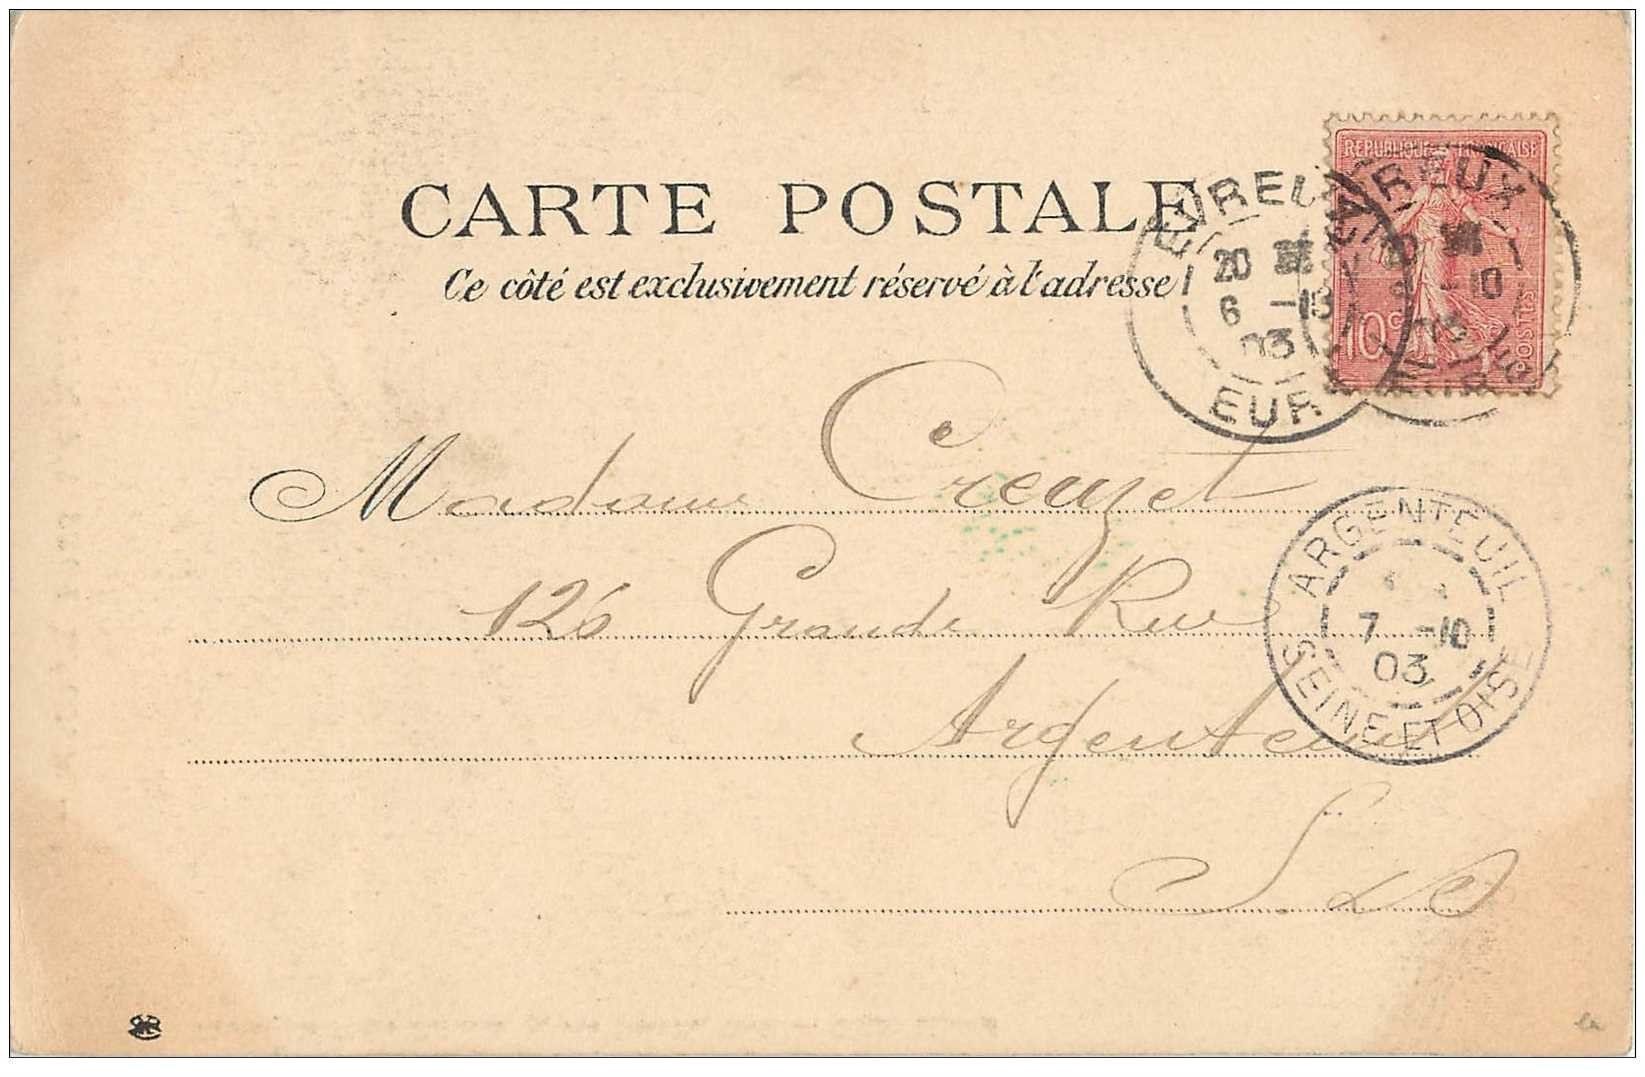 CARTE POSTALE
Ce côté est exclusivement réservé à l'adresse
REPUBLIQUE FRANÇAISE
10c
POSTES
EVREUX
20
6 -10
03
EUR
EVREUX
-10
Madame Creuzet
126 Grande Rue
Argenteuil
S. & O
ARGENTEUIL
7 -10
03
SEINE-ET-OISE